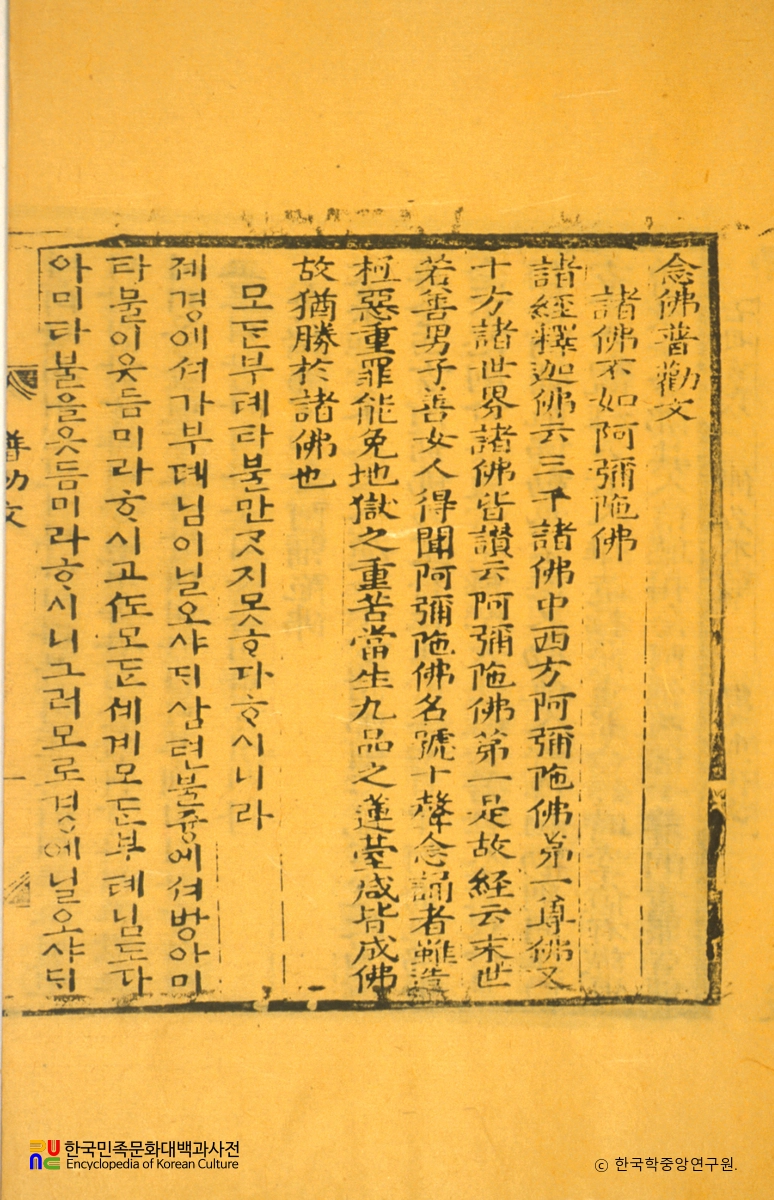 念佛普勸文
諸佛不如阿彌陁佛
諸經釋迦佛云三千諸佛中西方阿彌陁佛第一尊佛又
十方諸世界諸佛皆讃云阿彌陁佛第一是故經云末世
若善男子善女人得聞阿彌陁佛名號十聲念誦者雖造
極惡重罪能免地獄之重苦當生九品之蓮臺咸皆成佛
故猶勝於諸佛也
모ᄃᆞᆫ부톄타불만ᄀᆞᆺ지못ᄒᆞ다ᄒᆞ시니라
제경에셔가부톄님이닐오샤ᄃᆡ삼쳔불즁에셔방아미
타불이웃듬미라ᄒᆞ시고ᄯᅩ모ᄃᆞᆫ세계모ᄃᆞᆫ부톄님도다
아미타불을웃듬미라ᄒᆞ시니그러모로경에닐오샤ᄃᆡ
한국민족문화대백과사전
Encyclopedia of Korean Culture
© 한국학중앙연구원.